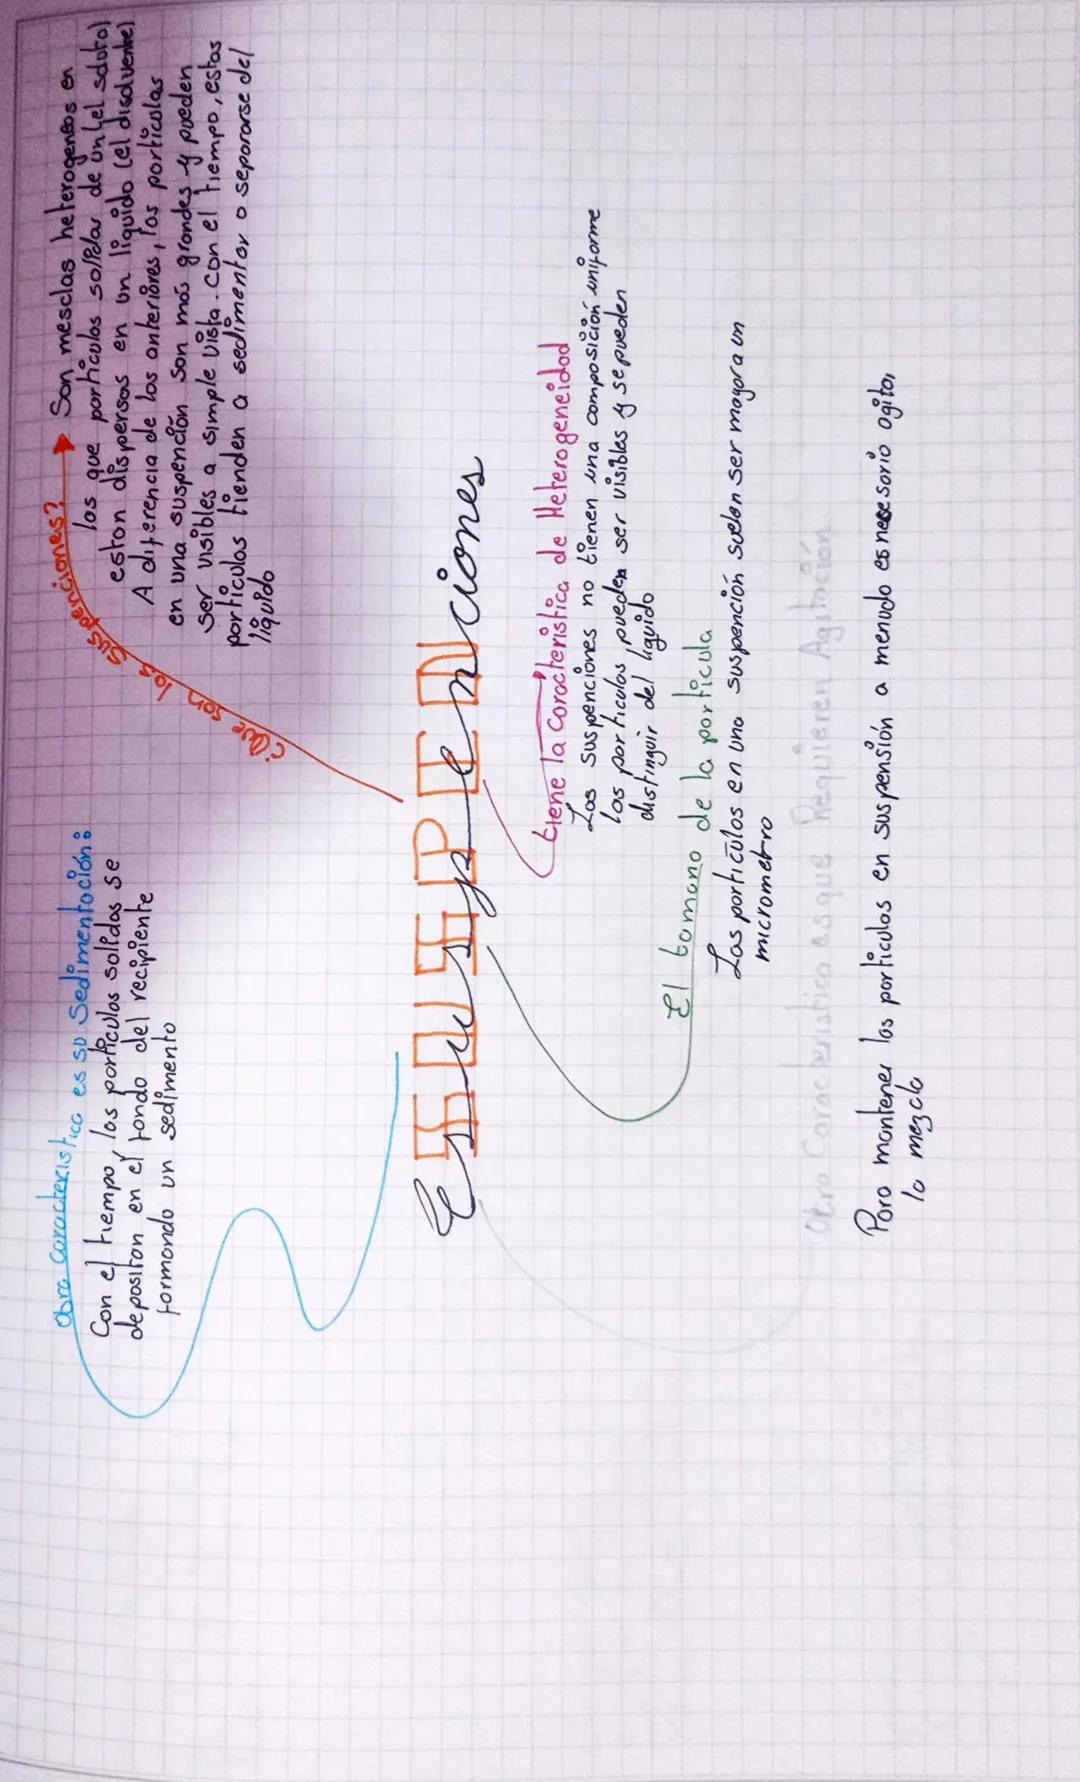 Otra Caracteristica es su Sedimentación:
Con el tiempo, las partículas solidas se
depositan en el fondo del recipiente
formando un sedimento
¿Que son las Suspenciones?
Son mesclas heterogeneas en
las que partículas solidas de un (el soluto)
estan dispersas en un liquido (el disolvente)
A diferencia de las anteriores, las partículas
en una suspención son más grandes y pueden
ser visibles a simple vista. Con el tiempo, estas
partículas tienden a sedimentar o separarse del
líquido
SUSPEN
Suspenciones
tiene la Caracteristica de Heterogeneidad
Las suspenciones no tienen una composición uniforme
Las partículas pueden ser visibles y se pueden
distinguir del liquido
El tamano de la particula
Las partículas en una suspención suelen ser mayor a un
micrometro
Otra Caracteristica es que Requieren Agitación
Para mantener las partículas en suspensión a menudo es necesario agitar,
la mezcla